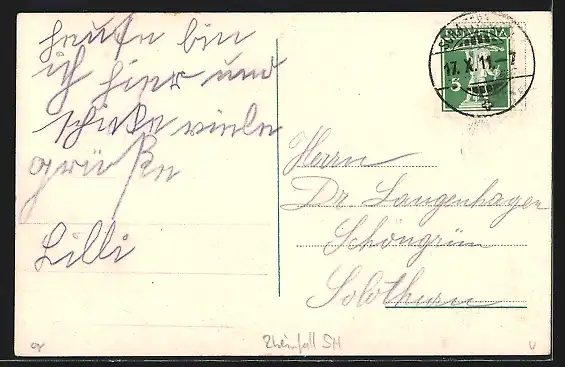 heute bin
ich hier und
schicke viele
grüße
Lilli
HELVETIA
5
17. X. 11.
Herrn
Dr. Langenhagen
Schöngrün
Solothurn
Rheinfall SH